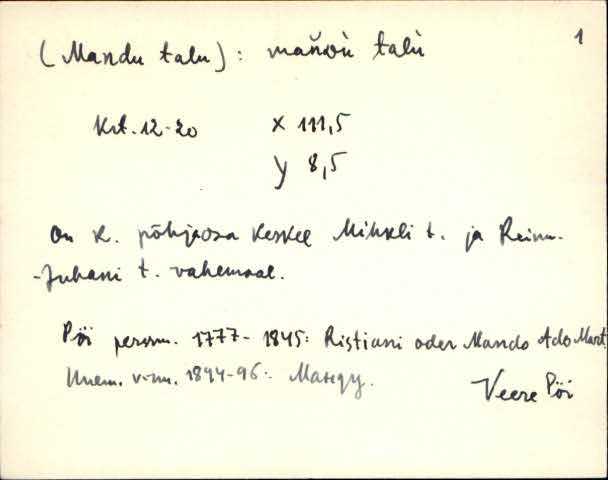 1
(Mandu talu): mañdù talù
Krt. 12-20 x 111,5
y 8,5
On k. põhjaosa keskel Mihkli t. ja Reinu-
-Juhani t. vahemaal.
Pöi person. 1777-1845: Ristiani oder Mando Ado Mart.
v-nu. 1894-96: Манду.
Veere Pöi